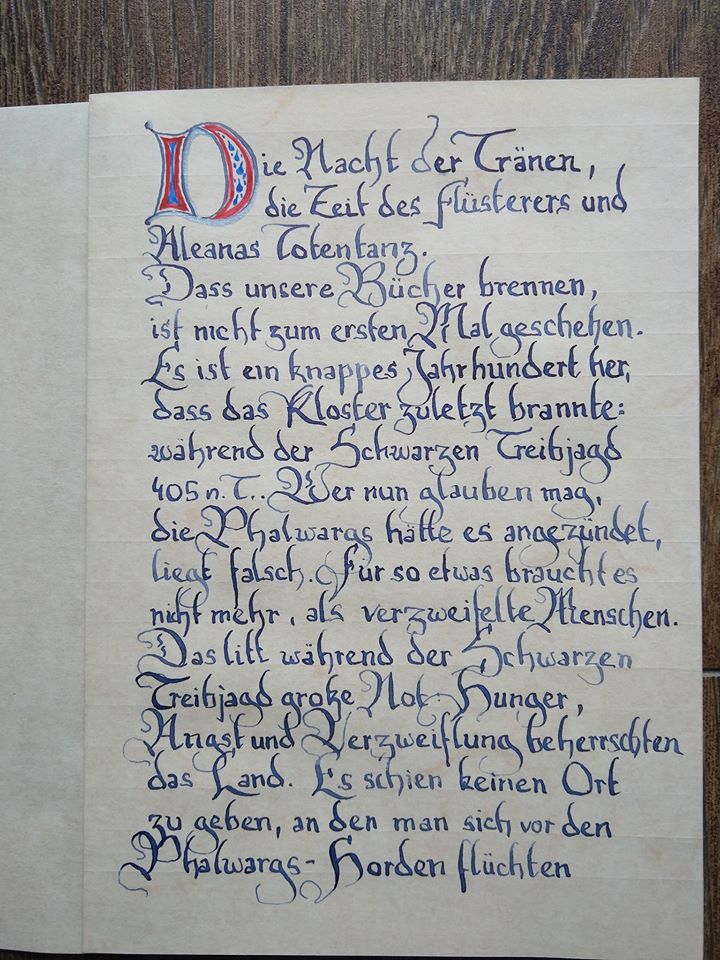 Die Nacht der Tränen,
die Zeit des Flüsterers und
Aleanas Totentanz.
Dass unsere Bücher brennen,
ist nicht zum ersten Mal geschehen.
Es ist ein knappes Jahrhundert her,
dass das Kloster zuletzt brannte:
während der Schwarzen Treibjagd
405 n. T.. Wer nun glauben mag,
die Phalwargs hätte es angezündet,
liegt falsch. Für so etwas braucht es
nicht mehr, als verzweifelte Menschen.
Das litt während der Schwarzen
Treibjagd große Not. Hunger,
Angst und Verzweiflung beherrschten
das Land. Es schien keinen Ort
zu geben, an den man sich vor den
Phalwargs-Horden flüchten